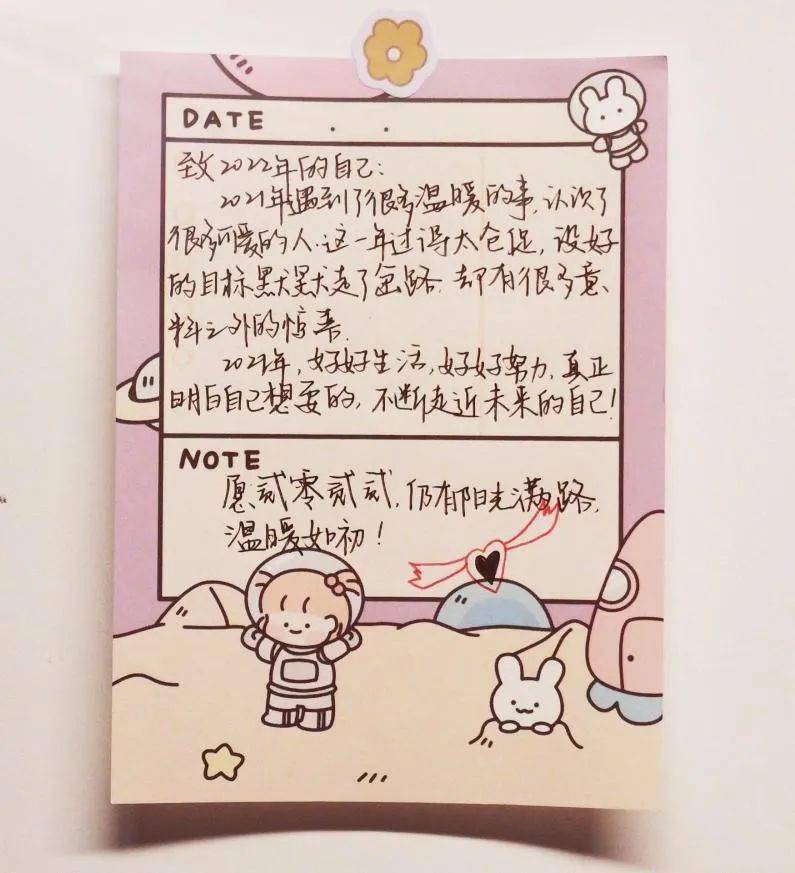 DATE . .
致2022年的自己:
2021年遇到了很多温暖的事,认识了
很多可爱的人.这一年过得太仓促,设好
的目标默默走了岔路.却有很多意
料之外的惊喜.
2022年,好好生活,好好努力,真正
明白自己想要的,不断走近未来的自己!
NOTE
愿贰零贰贰,仍有阳光满路,
温暖如初!